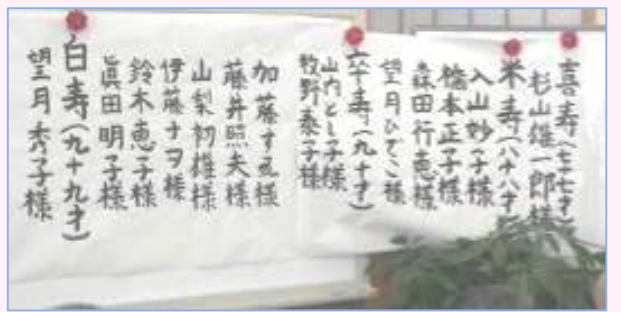 喜寿(七十七才)
杉山雄一郎様
米寿(八十八才)
入山妙子様
橋本正子様
森田行恵様
望月ひでこ様
卒寿(九十才)
山内とし子様
牧野泰子様
加藤すゑ様
藤井照夫様
山梨初雄様
伊藤ナヲ様
鈴木恵子様
眞田明子様
白寿(九十九才)
望月秀子様